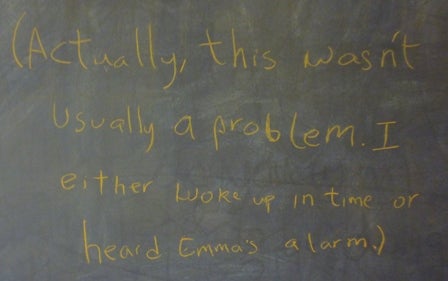 (Actually, this wasn't
usually a problem. I
either woke up in time or
heard Emma's alarm.)